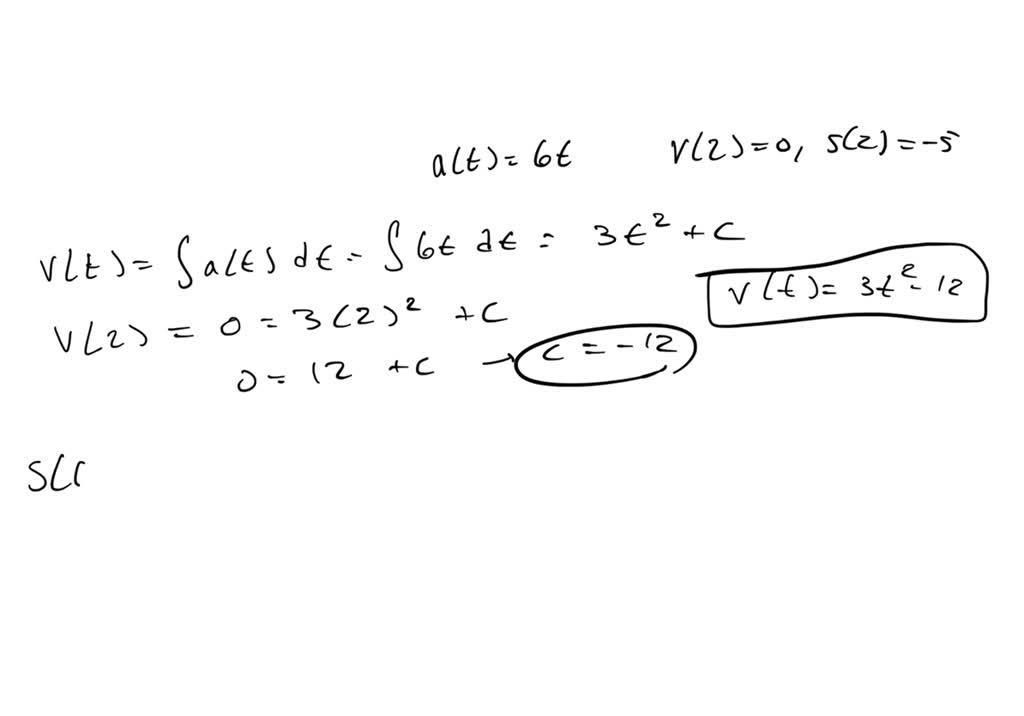 a(t) = 6t v(2) = 0, s(2) = -5
v(t) = ∫ a(t) dt = ∫ 6t dt = 3t² + C
v(t) = 3t² - 12
v(2) = 0 = 3(2)² + C
0 = 12 + C → C = -12
s(